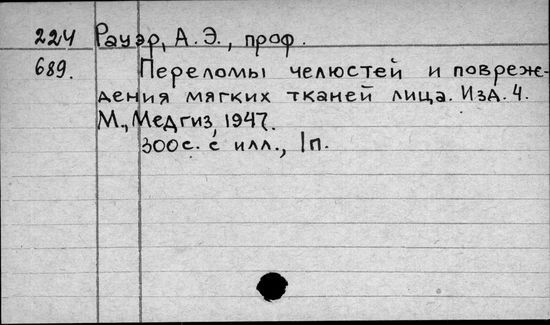 224 Рауэр, А. Э., проф.
689. Переломы челюстей и повреж-
дения мягких тканей лица. Изд. 4.
М., Медгиз, 1947.
300с. с илл., 1п.